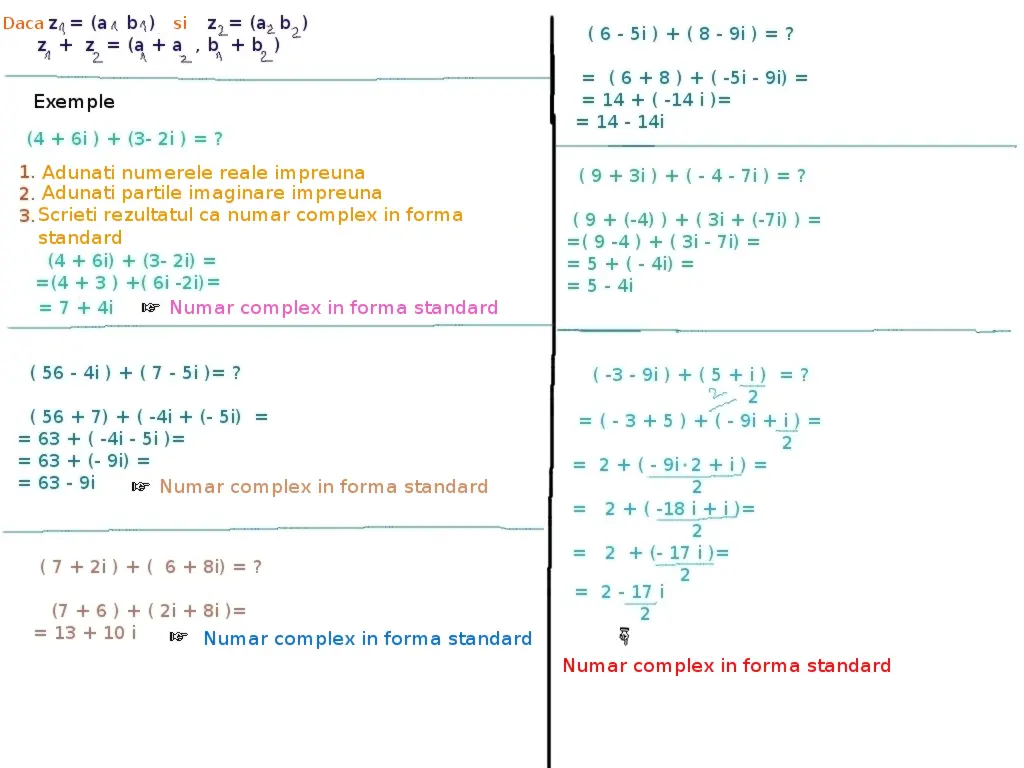 Daca z₁ = (a₁ b₁) si z₂ = (a₂ b₂)
z₁ + z₂ = (a₁ + a₂ , b₁ + b₂ )
Exemple
(4 + 6i ) + (3- 2i ) = ?
1. Adunati numerele reale impreuna
2. Adunati partile imaginare impreuna
3. Scrieti rezultatul ca numar complex in forma
standard
(4 + 6i) + (3- 2i) =
=(4 + 3 ) +( 6i -2i)=
= 7 + 4i ☞ Numar complex in forma standard
( 56 - 4i ) + ( 7 - 5i )= ?
( 56 + 7) + ( -4i + (- 5i) =
= 63 + ( -4i - 5i )=
= 63 + (- 9i) =
= 63 - 9i ☞ Numar complex in forma standard
( 7 + 2i ) + ( 6 + 8i) = ?
(7 + 6 ) + ( 2i + 8i )=
= 13 + 10 i ☞ Numar complex in forma standard
( 6 - 5i ) + ( 8 - 9i ) = ?
= ( 6 + 8 ) + ( -5i - 9i) =
= 14 + ( -14 i )=
= 14 - 14i
( 9 + 3i ) + ( - 4 - 7i ) = ?
( 9 + (-4) ) + ( 3i + (-7i) ) =
=( 9 -4 ) + ( 3i - 7i) =
= 5 + ( - 4i) =
= 5 - 4i
( -3 - 9i ) + ( 5 + i ) = ?
2 2
= ( - 3 + 5 ) + ( - 9i + i ) =
2
= 2 + ( - 9i·2 + i ) =
2
= 2 + ( -18 i + i )=
2
= 2 + (- 17 i )=
2
= 2 - 17 i
2
☟
Numar complex in forma standard